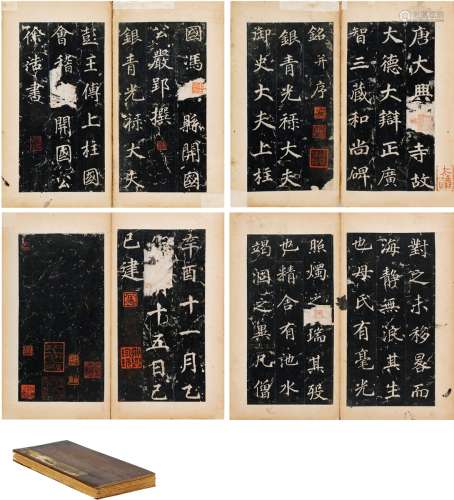 唐大興寺故
大德大辯正廣
智三藏和尚碑
銘并序
銀青光祿大夫
御史大夫上柱
國馮縣開國
公嚴郢撰
銀青光祿大夫
彭王傅上柱國
會稽開國公
徐浩書
對之未移晷而
海靜無浪其生
也母氏有毫光
照燭之瑞其歿
也精舍有池水
竭涸之異凡僧
辛酉十一月乙
十五日己
巳建